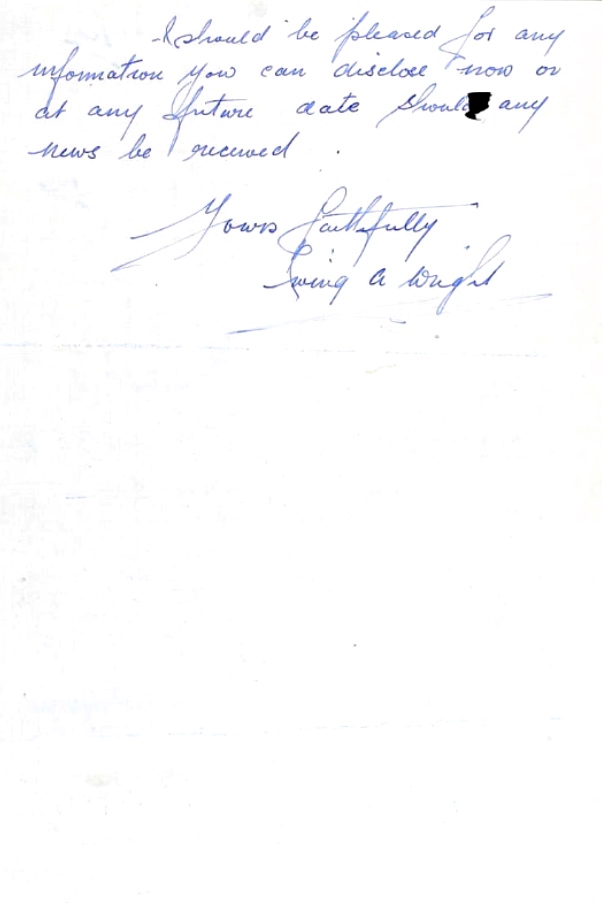 I should be pleased for any
information you can disclose now or
at any future date should any
news be received.
Yours faithfully
Irving A Wright